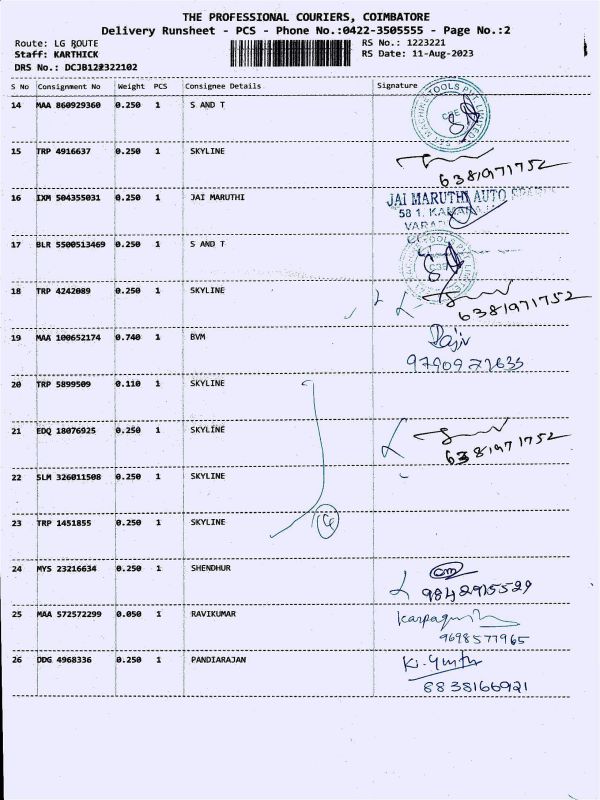 THE PROFESSIONAL COURIERS, COIMBATORE
Delivery Runsheet - PCS - Phone No.:0422-3505555 - Page No.:2
Route: LG ROUTE
Staff: KARTHICK
DRS No.: DCJB122322102
RS No.: 1223221
RS Date: 11-Aug-2023
S No Consignment No Weight PCS Consignee Details Signature
14 MAA 860929360 0.250 1 S AND T
15 TRP 4916637 0.250 1 SKYLINE
6381971752
16 IXM 504355031 0.250 1 JAI MARUTHI
JAI MARUTHI AUTO
58 1,
17 BLR 5500513469 0.250 1 S AND T
18 TRP 4242089 0.250 1 SKYLINE
6381971752
19 MAA 100652174 0.740 1 BVM
20 TRP 5899509 0.110 1 SKYLINE
21 EDQ 18076925 0.250 1 SKYLINE
6381971752
22 SLM 326011508 0.250 1 SKYLINE
23 TRP 1451855 0.250 1 SKYLINE
24 MYS 23216634 0.250 1 SHENDHUR
9842915529
25 MAA 572572299 0.050 1 RAVIKUMAR
9698577965
26 DDG 4968336 0.250 1 PANDIARAJAN
8838166921